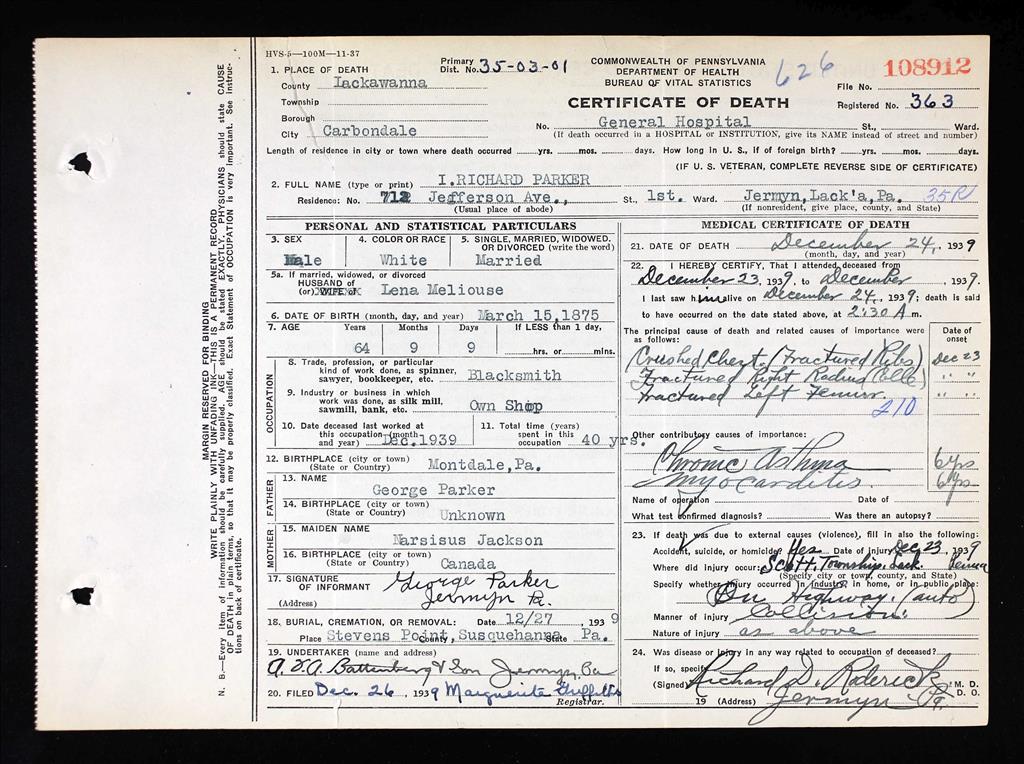 HVS-5—100M—11-37
MARGIN RESERVED FOR BINDING
WRITE PLAINLY WITH UNFADING INK—THIS IS A PERMANENT RECORD
N. B.—Every item of information should be carefully supplied. AGE should be stated EXACTLY. PHYSICIANS should state CAUSE
OF DEATH in plain terms, so that it may be properly classified. Exact Statement of OCCUPATION is very important. See instruc-
tions on back of certificate.
COMMONWEALTH OF PENNSYLVANIA
DEPARTMENT OF HEALTH
BUREAU OF VITAL STATISTICS
CERTIFICATE OF DEATH
626
108912
File No.
Registered No. 363
1. PLACE OF DEATH
Primary Dist. No. 35-03-01
County Lackawanna
Township
Borough
City Carbondale
No. General Hospital St., Ward.
(If death occurred in a HOSPITAL or INSTITUTION, give its NAME instead of street and number)
Length of residence in city or town where death occurred yrs. mos. days. How long in U. S., if of foreign birth? yrs. mos. days.
(IF U. S. VETERAN, COMPLETE REVERSE SIDE OF CERTIFICATE)
2. FULL NAME (type or print) I.RICHARD PARKER
Residence: No. 712 Jefferson Ave., St., 1st. Ward. Jermyn,Lack'a,Pa. 35R
(Usual place of abode) (If nonresident, give place, county, and State)
PERSONAL AND STATISTICAL PARTICULARS
3. SEX
Male
4. COLOR OR RACE
White
5. SINGLE, MARRIED, WIDOWED, OR DIVORCED (write the word)
Married
5a. If married, widowed, or divorced
HUSBAND of
(or) WIFE of Lena Meliouse
6. DATE OF BIRTH (month, day, and year) March 15,1875
7. AGE Years Months Days If LESS than 1 day,
64 9 9 hrs. or mins.
OCCUPATION
8. Trade, profession, or particular
kind of work done, as spinner,
sawyer, bookkeeper, etc. Blacksmith
9. Industry or business in which
work was done, as silk mill,
sawmill, bank, etc. Own Shop
10. Date deceased last worked at
this occupation (month
and year) Dec.1939
11. Total time (years)
spent in this
occupation 40 yrs.
12. BIRTHPLACE (city or town)
(State or Country) Montdale,Pa.
FATHER
13. NAME
George Parker
14. BIRTHPLACE (city or town)
(State or Country) Unknown
MOTHER
15. MAIDEN NAME
Narsisus Jackson
16. BIRTHPLACE (city or town)
(State or Country) Canada
17. SIGNATURE
OF INFORMANT George Parker
(Address) Jermyn Pa.
18. BURIAL, CREMATION, OR REMOVAL: Date 12/27 , 1939
Place Stevens Point, County, Susquehanna State Pa.
19. UNDERTAKER (name and address)
A. V. A. Battenberg & Son Jermyn, Pa
20. FILED Dec. 26 , 1939 Marguerite Griffiths
Registrar.
MEDICAL CERTIFICATE OF DEATH
21. DATE OF DEATH December 24, 1939
(month, day, and year)
22. I HEREBY CERTIFY, That I attended deceased from
December 23, 1939, to December , 1939.
I last saw him alive on December 24, 1939; death is said
to have occurred on the date stated above, at 2:30 A m.
The principal cause of death and related causes of importance were
as follows:
Date of
onset
Crushed Chest, (Fractured Ribs) Dec 23
Fractured Right Radius (Colle) " "
Fractured Left Femur. " "
210
Other contributory causes of importance:
Chronic Asthma 6 yrs
Myocarditis. 6 yrs
Name of operation Date of
What test confirmed diagnosis? Was there an autopsy?
23. If death was due to external causes (violence), fill in also the following:
Accident, suicide, or homicide? Yes Date of injury Dec 23, 1939
Where did injury occur: Scott Township. Lack. Penna
(Specify city or town, county, and State)
Specify whether injury occurred in industry, in home, or in public place:
On Highway. (auto)
Manner of injury Collision.
Nature of injury as above
24. Was disease or injury in any way related to occupation of deceased?
If so, specify
(Signed) Richard D. Roderick M. D. D. O.
19 (Address) Jermyn Pa.